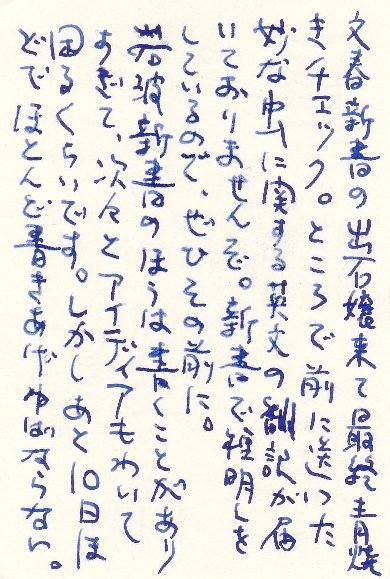 文春新書の出石燈来て最終青焼
きチェック。ところで前に送った
妙な虫に関する英文の翻訳が届
いておりませんぞ。新書で種明しを
しているので、ぜひその前に。
岩波新書のほうは書くことがあり
すぎて、次々とアイディアもわいて
困るくらいです。しかしあと10日ほ
どでほとんど書きあげねばならない。